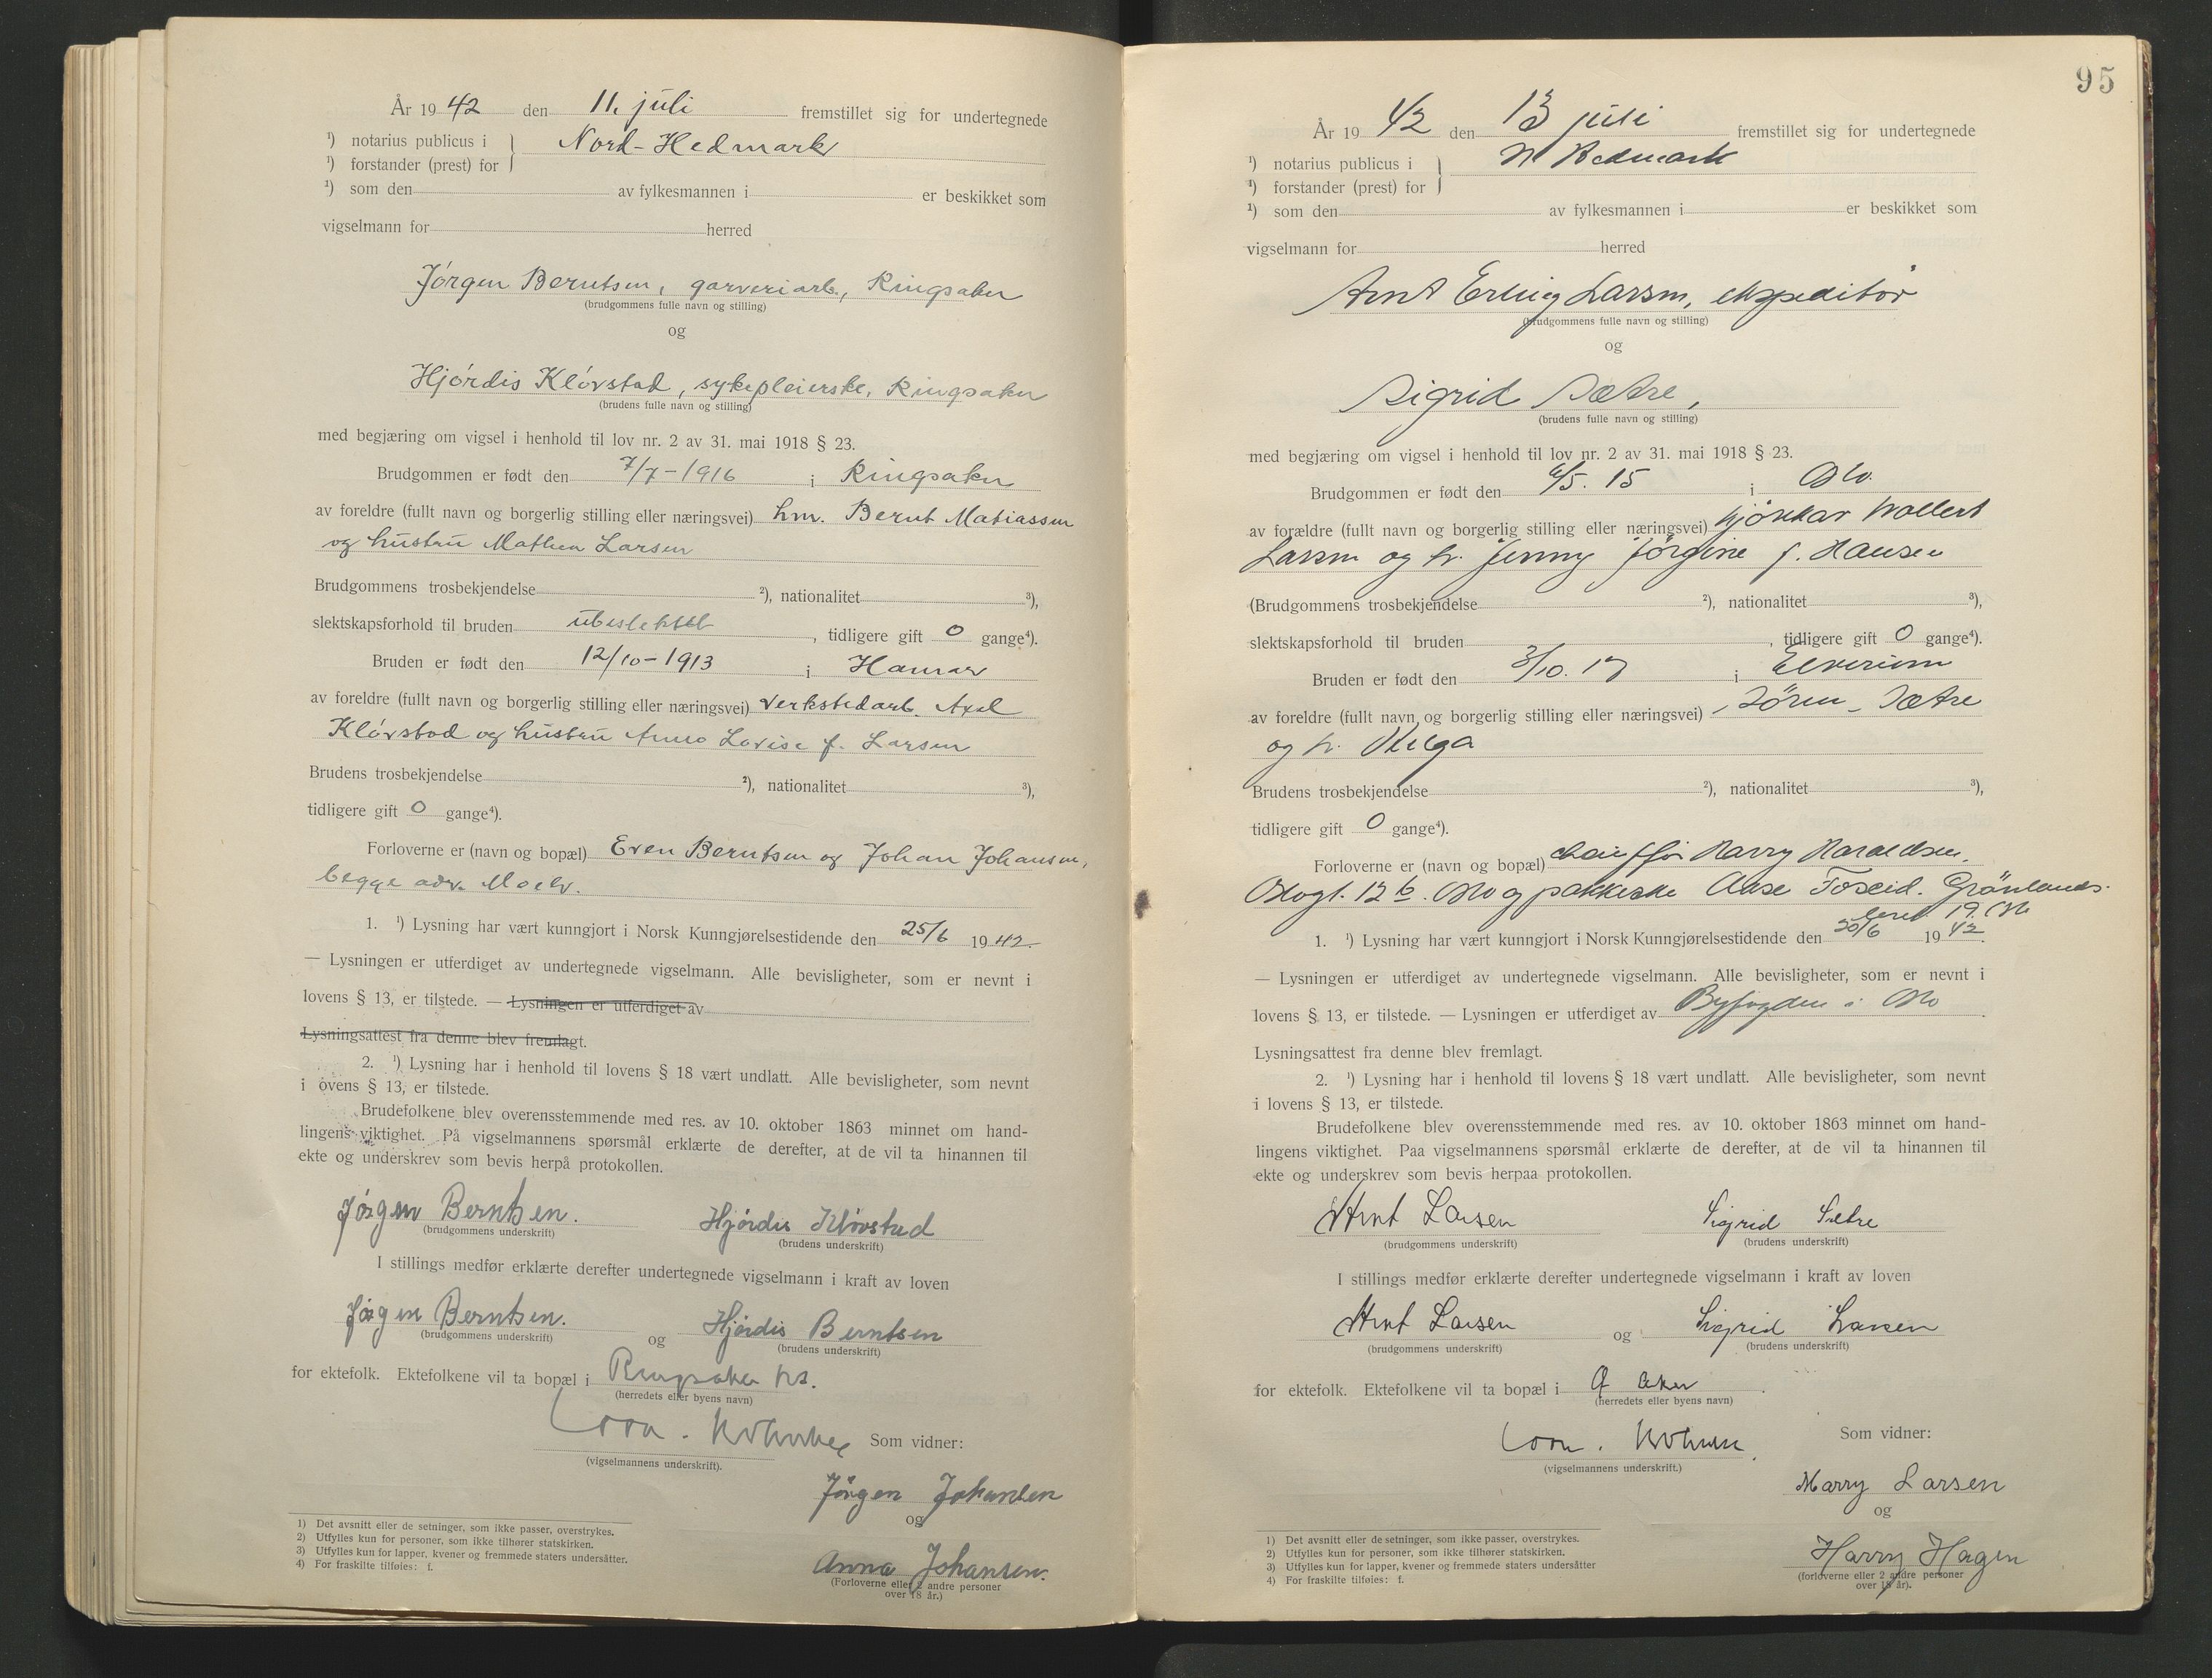 År 1942 den 11. juli fremstillet sig for undertegnede
¹) notarius publicus i } Nord-Hedmark
¹) forstander (prest) for
¹) som den av fylkesmannen i er beskikket som
vigselmann for herred
Jörgen Berntsen, garveriarb., Ringsaker
(brudgommens fulle navn og stilling)
og
Hjördis Klövstad, sykepleierske, Ringsaker
(brudens fulle navn og stilling)
med begjæring om vigsel i henhold til lov nr. 2 av 31. mai 1918 § 23.
Brudgommen er født den 7/7-1916 i Ringsaker
av foreldre (fullt navn og borgerlig stilling eller næringsvei) hm. Bernt Matiassen
og hustru Mathea Larsen
Brudgommens trosbekjendelse ²), nationalitet ³),
slektskapsforhold til bruden ubeslektet, tidligere gift 0 gange⁴).
Bruden er født den 12/10-1913 i Hamar
av foreldre (fullt navn og borgerlig stilling eller næringsvei) verkstedarb. Axel
Klövstad og hustru Anna Lovise f. Larsen
Brudens trosbekjendelse ²), nationalitet ³),
tidligere gift 0 gange⁴).
Forloverne er (navn og bopæl) Even Berntsen og Johan Johansen,
begge adr. Moelv.
1. ¹) Lysning har vært kunngjort i Norsk Kunngjørelsestidende den 25/6 1942.
— Lysningen er utferdiget av undertegnede vigselmann. Alle bevisligheter, som er nevnt i
lovens § 13, er tilstede. — Lysningen er utferdiget av
Lysningsattest fra denne blev fremlagt.
2. ¹) Lysning har i henhold til lovens § 18 vært undlatt. Alle bevisligheter, som nevnt
i ovens § 13, er tilstede.
Brudefolkene blev overensstemmende med res. av 10. oktober 1863 minnet om hand-
lingens viktighet. På vigselmannens spørsmål erklærte de derefter, at de vil ta hinannen til
ekte og underskrev som bevis herpå protokollen.
Jörgen Berntsen. Hjördis Klövstad
(brudgommens underskrift) (brudens underskrift)
I stillings medfør erklærte derefter undertegnede vigselmann i kraft av loven
Jörgen Berntsen. og Hjördis Berntsen
(brudgommens underskrift) (brudens underskrift)
for ektefolk. Ektefolkene vil ta bopæl i Ringsaker hd.
(herredets eller byens navn)
Som vidner:
(vigselmannens underskrift).
Jörgen Johansen
og
Anna Johansen.
(Forloverne eller 2 andre personer
over 18 år.)
1) Det avsnitt eller de setninger, som ikke passer, overstrykes.
2) Utfylles kun for personer, som ikke tilhører statskirken.
3) Utfylles kun for lapper, kvener og fremmede staters undersåtter.
4) For fraskilte tilføies: f.
95
År 1942 den 13 juli fremstillet sig for undertegnede
¹) notarius publicus i } N Hedmark
¹) forstander (prest) for
¹) som den av fylkesmannen i er beskikket som
vigselmann for herred
Arnt Erling Larsen, ekspeditör
(brudgommens fulle navn og stilling)
og
Sigrid Sætre,
(brudens fulle navn og stilling)
med begjæring om vigsel i henhold til lov nr. 2 av 31. mai 1918 § 23.
Brudgommen er født den 6/5. 15 i Oslo
av forældre (fullt navn og borgerlig stilling eller næringsvei) Wollert
Larsen og h. Jenny Jörgine f. Hansen
(Brudgommens trosbekjendelse ²), nationalitet ³),
slektskapsforhold til bruden , tidligere gift 0 gange⁴).
Bruden er født den 3/10. 17 i Elverum
av foreldre (fullt navn og borgerlig stilling eller næringsvei) Sören Sætre
og h. Helga
Brudens trosbekjendelse ²), nationalitet ³),
tidligere gift 0 gange⁴).
Forloverne er (navn og bopæl) chaufför Harry Haraldsen,
Oslogt. 12 b. Oslo og pakkerske Aase Foseid. Grönlands-
leret 19. Oslo
1. ¹) Lysning har vært kunngjort i Norsk Kunngjørelsestidende den 30/6 1942.
— Lysningen er utferdiget av undertegnede vigselmann. Alle bevisligheter, som er nevnt i
lovens § 13, er tilstede. — Lysningen er utferdiget av Byfogden i Oslo
Lysningsattest fra denne blev fremlagt.
2. ¹) Lysning har i henhold til lovens § 18 vært undlatt. Alle bevisligheter, som nevnt
i lovens § 13, er tilstede.
Brudefolkene blev overensstemmende med res. av 10. oktober 1863 minnet om hand-
lingens viktighet. Paa vigselmannens spørsmål erklærte de derefter, at de vil ta hinannen til
ekte og underskrev som bevis herpaa protokollen.
Arnt Larsen Sigrid Sætre
(brudgommens underskrift) (brudens underskrift)
I stillings medfør erklærte derefter undertegnede vigselmann i kraft av loven
Arnt Larsen og Sigrid Larsen
(brudgommens underskrift) (brudens underskrift)
for ektefolk. Ektefolkene vil ta bopæl i Aker
(herredets eller byens navn)
Som vidner:
(vigselmannens underskrift.)
Marry Larsen
og
Harry Hagen
(forloverne eller 2 andre personer
over 18 år).
1) Det avsnitt eller de setninger, som ikke passer, overstrykes.
2) Utfylles kun for personer, som ikke tilhører statskirken.
3) Utfylles kun for lapper, kvener og fremmede staters undersåtter
4) For fraskilte tilføies: f.